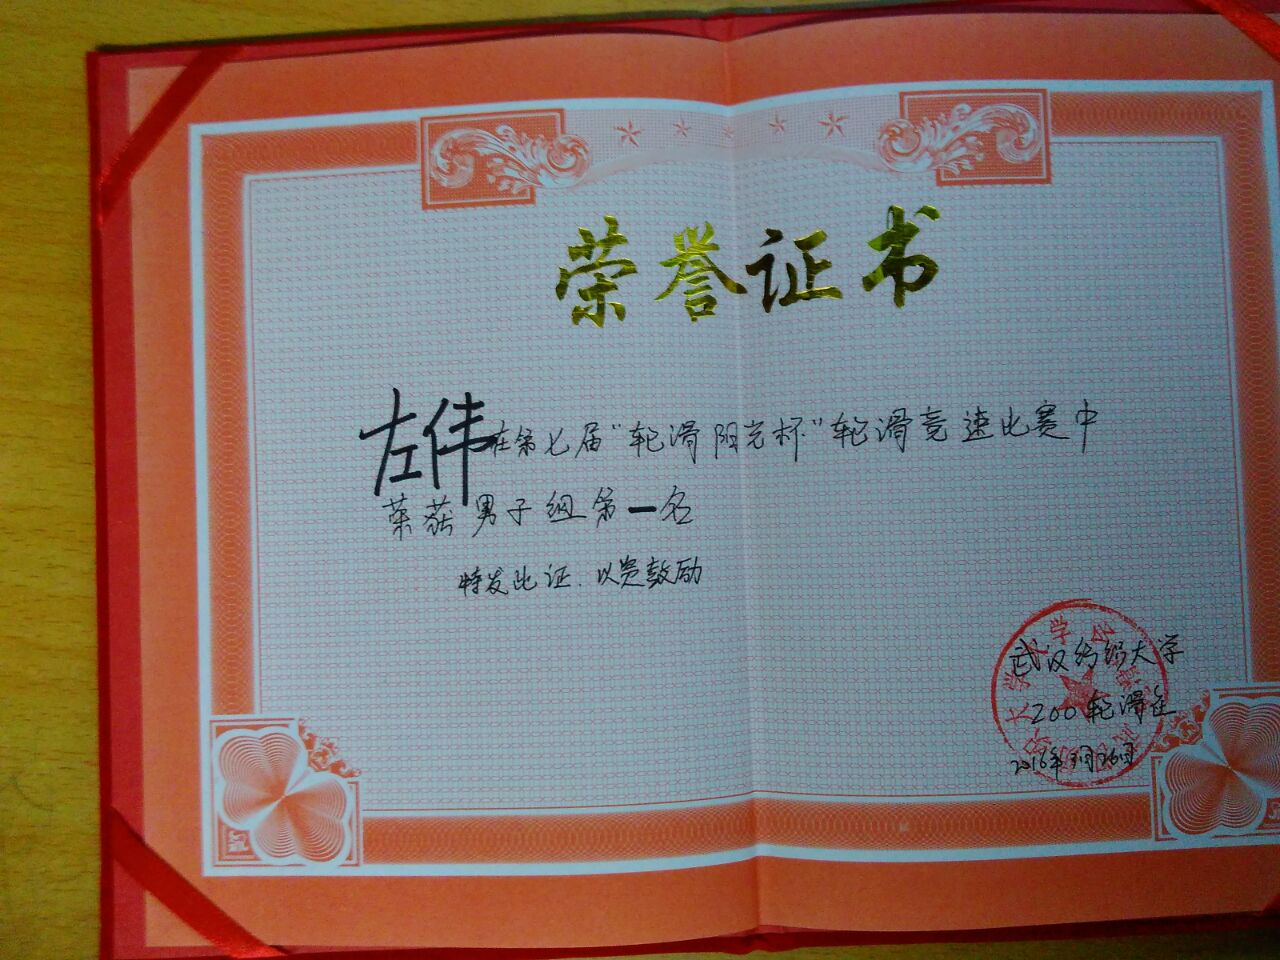 荣誉证书
左伟在第七届"轮滑阳光杯"轮滑竞速比赛中
荣获男子组第一名
特发此证.以资鼓励
武汉纺织大学
Zoo轮滑社
2016年3月26日